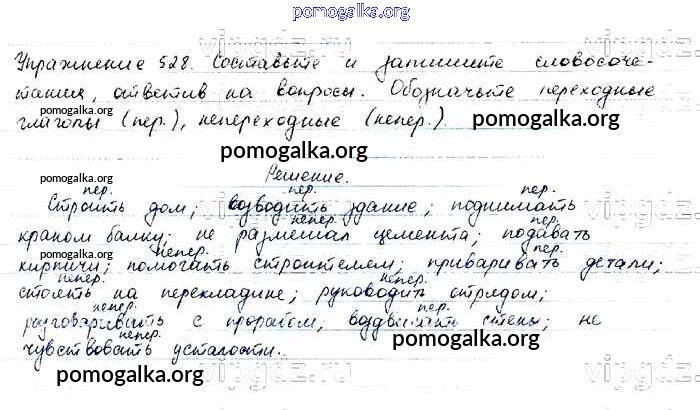 pomogalka.org
Упражнение 528. Составьте и запишите словосоче-
тания, ответив на вопросы. Обозначьте переходные
pomogalka.org
глаголы (пер.), непереходные (непер.). pomogalka.org
pomogalka.org
Решение.
pomogalka.org
пер. пер. пер.
Строить дом; возводить здание; поднимать
непер. пер.
краном балку; не размешал цемента; подавать
pomogalka.org
непер. пер.
кирпичи; помогать строителем; приваривать детали;
непер. непер.
стоять на перекладине; руководить отрядом;
непер. пер.
разговаривать с прорабом; воздвигать стены; не
непер.
чувствовать усталости. pomogalka.org
pomogalka.org
vipgdz.com